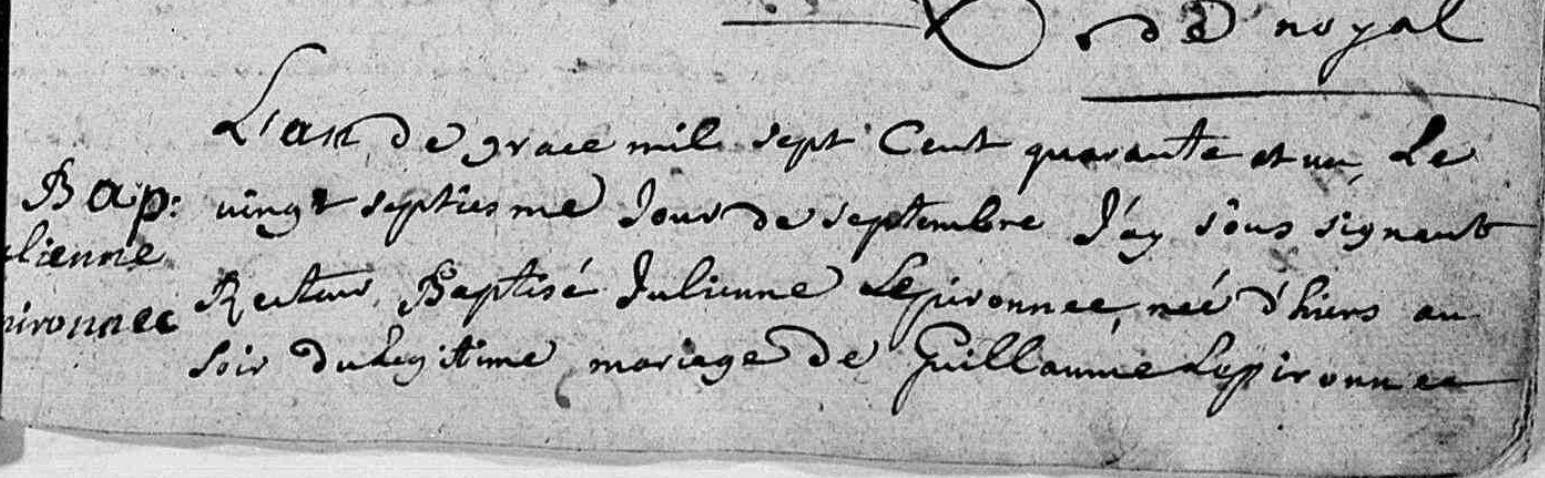 de noyal
L'an de grace mil sept Cent quarante et un, Le
Bap: vingt septiesme Jour de septembre J'ay sous signant
lienne
Recteur, Baptisé Julienne Lepironnec, neé d'hiers au
pironnec
soir du Legitime mariage de Guillaume Lepironnec